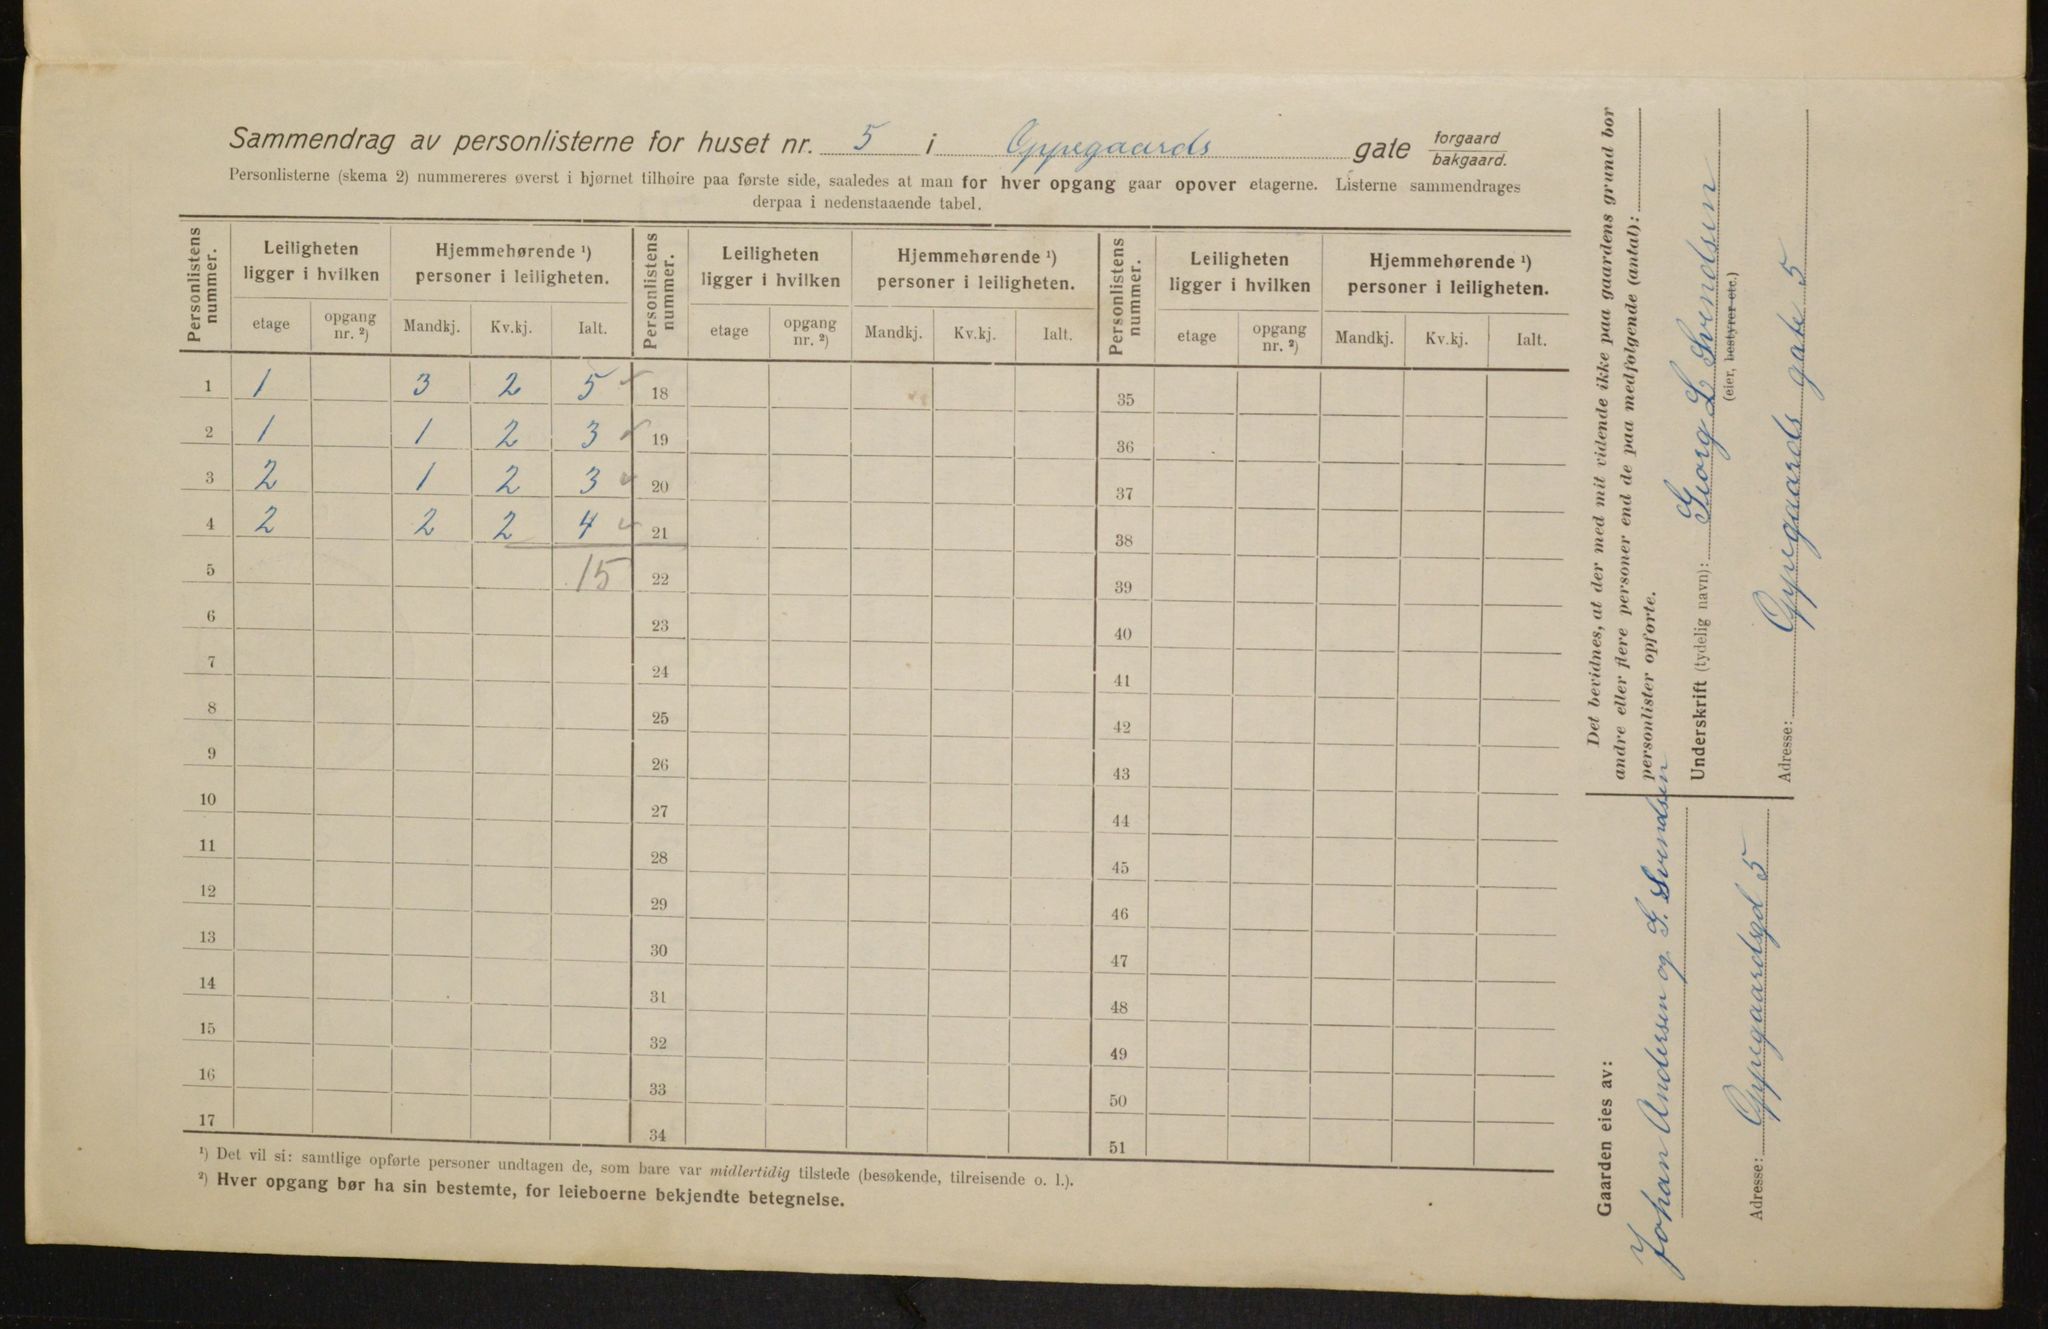 Sammendrag av personlisterne for huset nr. 5 i Oppegaards gate forgaard bakgaard.
Personlisterne (skema 2) nummereres øverst i hjørnet tilhøire paa første side, saaledes at man for hver opgang gaar opover etagerne. Listerne sammendrages
derpaa i nedenstaaende tabel.
Personlistens nummer. Leiligheten ligger i hvilken Hjemmehørende ¹) personer i leiligheten. Personlistens nummer. Leiligheten ligger i hvilken Hjemmehørende ¹) personer i leiligheten. Personlistens nummer. Leiligheten ligger i hvilken Hjemmehørende ¹) personer i leiligheten.
etage opgang nr. ²) Mandkj. Kv.kj. Ialt. etage opgang nr. ²) Mandkj. Kv.kj. Ialt. etage opgang nr. ²) Mandkj. Kv.kj. Ialt.
1 1 3 2 5 18 35
2 1 1 2 3 19 36
3 2 1 2 3 20 37
4 2 2 2 4 21 38
5 15 22 39
6 23 40
7 24 41
8 25 42
9 26 43
10 27 44
11 28 45
12 29 46
13 30 47
14 31 48
15 32 49
16 33 50
17 34 51
¹) Det vil si: samtlige opførte personer undtagen de, som bare var midlertidig tilstede (besøkende, tilreisende o. l.).
²) Hver opgang bør ha sin bestemte, for leieboerne bekjendte betegnelse.
Det bevidnes, at der med mit vidende ikke paa gaardens grund bor
andre eller flere personer end de paa medfølgende (antal):
personlister opførte.
Underskrift (tydelig navn): Georg L Svendsen
(eier, bestyrer etc.)
Adresse: Oppegaards gate 5
Gaarden eies av:
Johan Andersen og G. Svendsen
Adresse: Oppegaardsgd 5